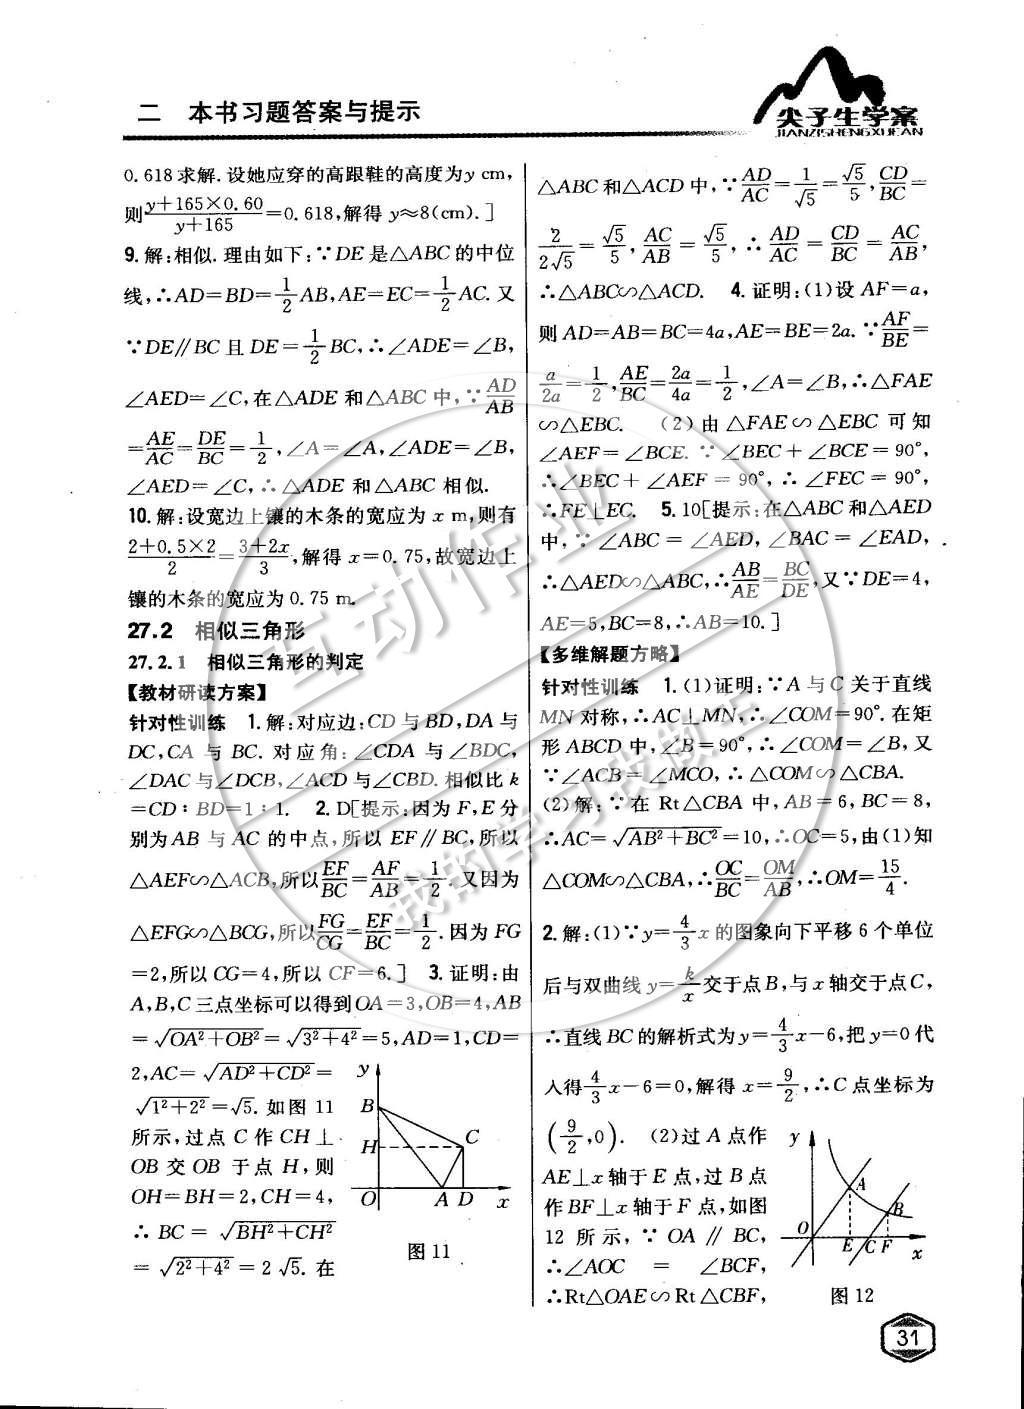 二 本书习题答案与提示
尖子生学案
JIANZISHENGXUEAN
0.618求解.设她应穿的高跟鞋的高度为y cm,
则(y+165×0.60)/(y+165)=0.618,解得 y≈8(cm).]
9.解:相似.理由如下:∵DE是△ABC的中位
线,∴AD=BD=1/2AB,AE=EC=1/2AC.又
∵DE∥BC且DE=1/2BC,∴∠ADE=∠B,
∠AED=∠C,在△ADE和△ABC中,∵AD/AB
=AE/AC=DE/BC=1/2,∠A=∠A,∠ADE=∠B,
∠AED=∠C,∴△ADE和△ABC相似.
10.解:设宽边上镶的木条的宽应为x m,则有
(2+0.5×2)/2=(3+2x)/3,解得x=0.75,故宽边上
镶的木条的宽应为0.75 m.
27.2 相似三角形
27.2.1 相似三角形的判定
【教材研读方案】
针对性训练 1.解:对应边:CD与BD,DA与
DC,CA与BC.对应角:∠CDA与∠BDC,
∠DAC与∠DCB,∠ACD与∠CBD.相似比k
=CD∶BD=1∶1. 2.D[提示:因为F,E分
别为AB与AC的中点,所以EF∥BC,所以
△AEF∽△ACB,所以EF/BC=AF/AB=1/2.又因为
△EFG∽△BCG,所以FG/CG=EF/BC=1/2.因为FG
=2,所以CG=4,所以CF=6.] 3.证明:由
A,B,C三点坐标可以得到OA=3,OB=4,AB
=√(OA²+OB²)=√(3²+4²)=5,AD=1,CD=
2,AC=√(AD²+CD²)=
√(1²+2²)=√5.如图11
所示,过点C作CH⊥
OB交OB于点H,则
OH=BH=2,CH=4,
∴BC=√(BH²+CH²)
=√(2²+4²)=2√5.在
y
B
H
C
O
A
D
x
图11
△ABC和△ACD中,∵AD/AC=1/√5=√5/5,CD/BC=
2/2√5=√5/5,AC/AB=√5/5,∴AD/AC=CD/BC=AC/AB,
∴△ABC∽△ACD. 4.证明:(1)设AF=a,
则AD=AB=BC=4a,AE=BE=2a.∵AF/BE=
a/2a=1/2,AE/BC=2a/4a=1/2,∠A=∠B,∴△FAE
∽△EBC. (2)由△FAE∽△EBC可知
∠AEF=∠BCE.∵∠BEC+∠BCE=90°,
∴∠BEC+∠AEF=90°,∴∠FEC=90°,
∴FE⊥EC. 5.10[提示:在△ABC和△AED
中,∵∠ABC=∠AED,∠BAC=∠EAD,
∴△AED∽△ABC,∴AB/AE=BC/DE,又∵DE=4,
AE=5,BC=8,∴AB=10.]
【多维解题方略】
针对性训练 1.(1)证明:∵A与C关于直线
MN对称,∴AC⊥MN,∴∠COM=90°.在矩
形ABCD中,∠B=90°,∴∠COM=∠B,又
∵∠ACB=∠MCO,∴△COM∽△CBA.
(2)解:∵在Rt△CBA中,AB=6,BC=8,
∴AC=√(AB²+BC²)=10,∴OC=5,由(1)知
△COM∽△CBA,∴OC/BC=OM/AB,∴OM=15/4.
2.解:(1)∵y=4/3x的图象向下平移6个单位
后与双曲线y=k/x交于点B,与x轴交于点C,
∴直线BC的解析式为y=4/3x-6,把y=0代
入得4/3x-6=0,解得x=9/2,∴C点坐标为
(9/2,0). (2)过A点作
AE⊥x轴于E点,过B点
作BF⊥x轴于F点,如图
12所示,∵OA∥BC,
∴∠AOC=∠BCF,
∴Rt△OAE∽Rt△CBF,
y
A
B
O
E
C
F
x
图12
31
互动作业
我的学习我做主